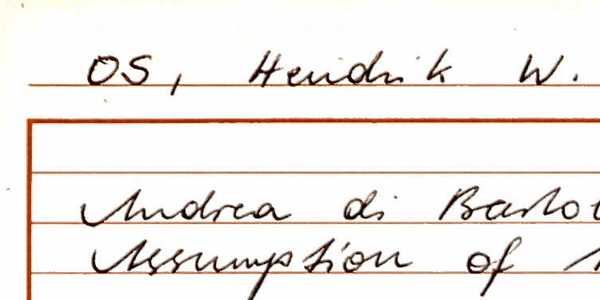 OS, Hendrik W.
Andrea di Bartol
Assumption of